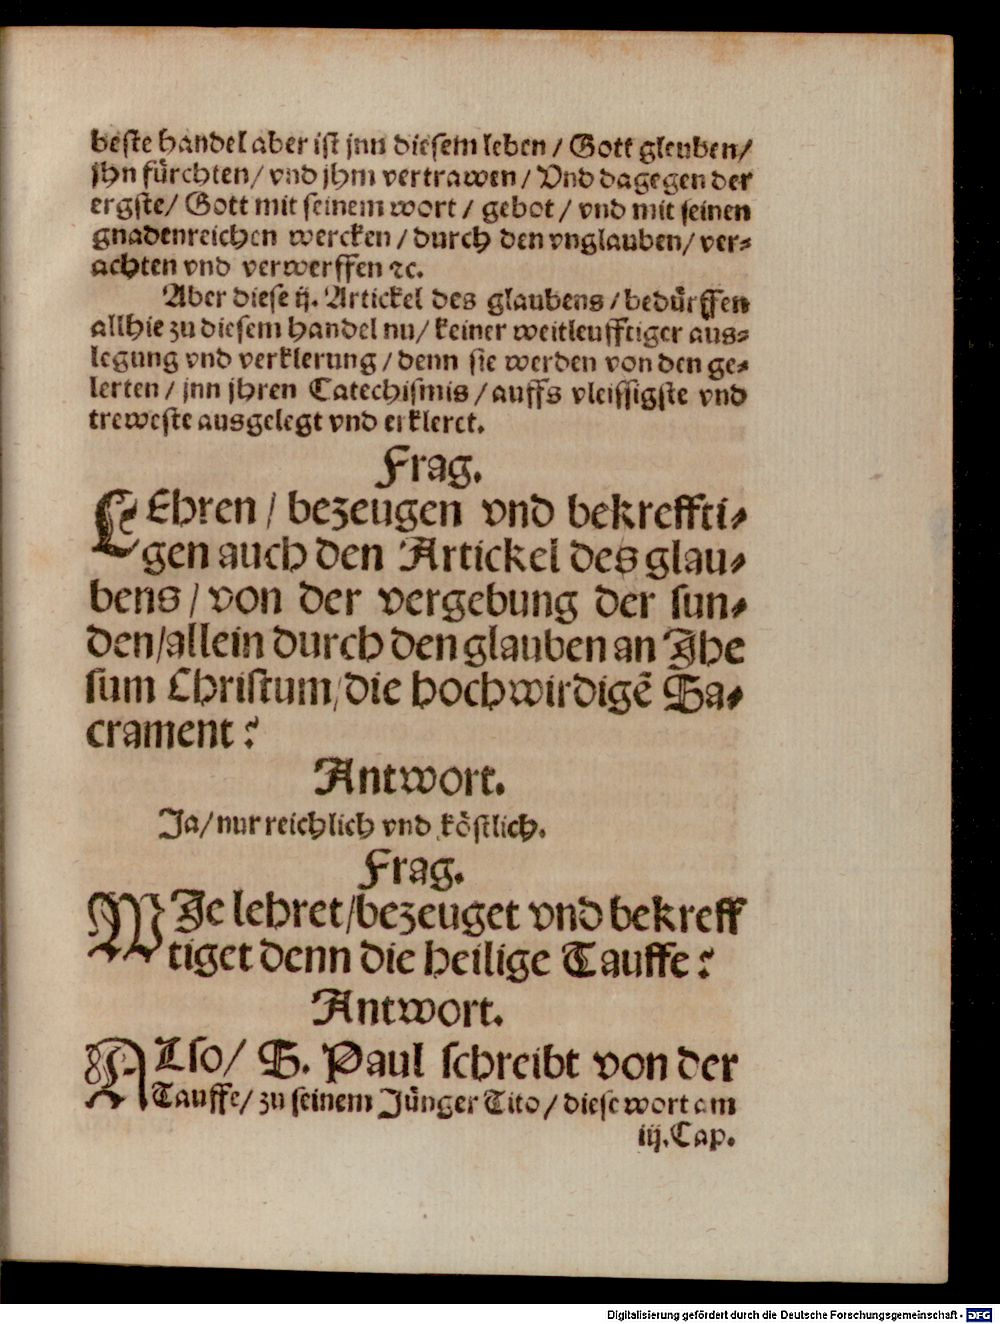 beste handel aber ist jnn diesem leben / Gott gleuben/
jhn fürchten/ vnd jhm vertrawen / Vnd dagegen der
ergste/ Gott mit seinem wort / gebot / vnd mit seinen
gnadenreichen wercken / durch den vnglauben/ ver⸗
achten vnd verwerffen ꝛc.
Aber diese ij. Artickel des glaubens / bedürffen
allhie zu diesem handel nu/ keiner weitleufftiger aus⸗
legung vnd verklerung / denn sie werden von den ge⸗
lerten / jnn jhren Catechismis / auffs vleissigste vnd
treweste ausgelegt vnd erkleret.
Frag.
LEhren / bezeugen vnd bekreffti⸗
gen auch den Artickel des glau⸗
bens / von der vergebung der sun⸗
den/allein durch den glauben an Jhe
sum Christum/die hochwirdigẽ Sa⸗
crament?
Antwort.
Ja/ nur reichlich vnd köstlich.
Frag.
WJe lehret/bezeuget vnd bekreff
tiget denn die heilige Tauffe?
Antwort.
ALso/ S. Paul schreibt von der
Tauffe/ zu seinem Jünger Tito / diese wort am
iij. Cap.
Digitalisierung gefördert durch die Deutsche Forschungsgemeinschaft - DFG